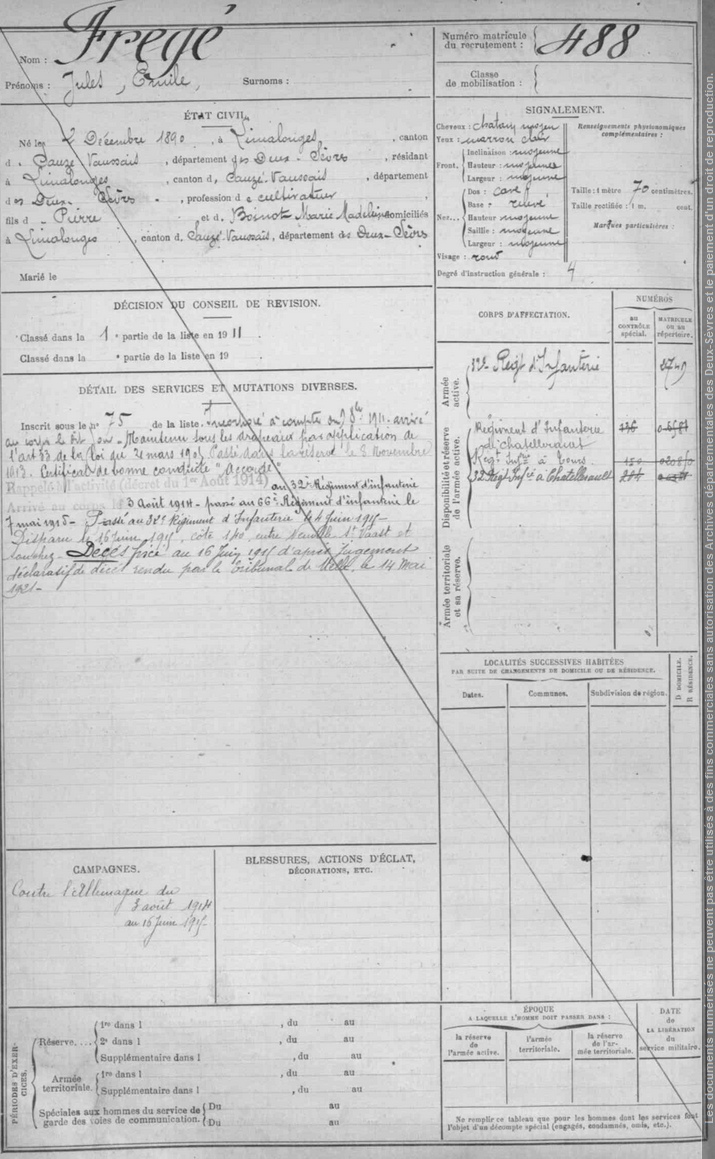 Nom : Fregé
Prénoms : Jules, Emile, Surnoms :
Numéro matricule du recrutement : 488
Classe de mobilisation :
ÉTAT CIVIL.
Né le Décembre 1890, à Limalonges, canton
d Sauzé Vaussais, département des Deux-Sèvres, résidant
à Limalonges, canton d Sauzé-Vaussais, département
des Deux Sèvres, profession de cultivateur
fils d Pierre et d Boinot Marie Madeleine domiciliés
à Limalonges, canton d Sauzé-Vaussais, département des Deux-Sèvres
Marié le
SIGNALEMENT.
Cheveux : chatain moyen
Yeux : marron clair
Front. Inclinaison : moyenne
Hauteur : moyenne
Largeur : moyenne
Nez... Dos : cave
Base : relevé
Hauteur moyenne
Saillie : moyenne
Largeur : moyenne
Visage : rond
Degré d'instruction générale : 4
Renseignements physionomiques complémentaires :
Taille : 1 mètre 70 centimètres.
Taille rectifiée : 1 m. cent.
Marques particulières :
DÉCISION DU CONSEIL DE REVISION.
Classé dans la 1e partie de la liste en 1911
Classé dans la e partie de la liste en 19
DÉTAIL DES SERVICES ET MUTATIONS DIVERSES.
Inscrit sous le n° 75 de la liste. Incorporé à compter du 1911. arrivé
au corps le dit jour - Maintenu sous les drapeaux par application de
l'art 33 de la loi du 21 mars 1905 Passé dans la réserve le 8 Novembre
1913. Certificat de bonne conduite "Accordé"
Rappelé à l'activité (décret du 1er Août 1914) au 32e Régiment d'infanterie
Arrivé au corps le 3 Août 1914 - passé au 66e Régiment d'infanterie le
7 mai 1915 - Passé au 32e Régiment d'Infanterie le 4 Juin 1915
Disparu le 16 Juin 1915, côte 140, entre Neuville St Vaast et
Souchez - Décès fixé au 16 Juin 1915 d'après Jugement
déclaratif de décès rendu par le tribunal de Melle le 14 Mai
1921 -
CORPS D'AFFECTATION.
NUMÉROS
au CONTRÔLE spécial.
MATRICULE ou au répertoire.
Armée active.
32e Regt d'Infanterie
Disponibilité et réserve de l'armée active.
Régiment d'Infanterie
de Chatellerault
Regt Infie à Tours
32 Régt Infie à Chatellerault
Armée territoriale et sa réserve.
LOCALITÉS SUCCESSIVES HABITÉES
PAR SUITE DE CHANGEMENTS DE DOMICILE OU DE RÉSIDENCE.
Dates.
Communes.
Subdivision de région.
D DOMICILE.
R RÉSIDENCE.
CAMPAGNES.
Contre l'Allemagne du
3 août 1914
au 16 Juin 1915
BLESSURES, ACTIONS D'ÉCLAT,
DÉCORATIONS, ETC.
PÉRIODES D'EXERCICES.
Réserve....
1re dans l , du au
2e dans l , du au
Supplémentaire dans l , du au
Armée territoriale.
1re dans l , du au
Supplémentaire dans l , du au
Spéciales aux hommes du service de garde des voies de communication.
Du au
Du au
ÉPOQUE
A LAQUELLE L'HOMME DOIT PASSER DANS :
la réserve de l'armée active.
l'armée territoriale.
la réserve de l'armée territoriale.
DATE de LA LIBÉRATION du service militaire.
Ne remplir ce tableau que pour les hommes dont les services font
l'objet d'un décompte spécial (engagés, condamnés, omis, etc.).
Les documents numérisés ne peuvent pas être utilisés à des fins commerciales sans autorisation des Archives départementales des Deux-Sèvres et le paiement d'un droit de reproduction.